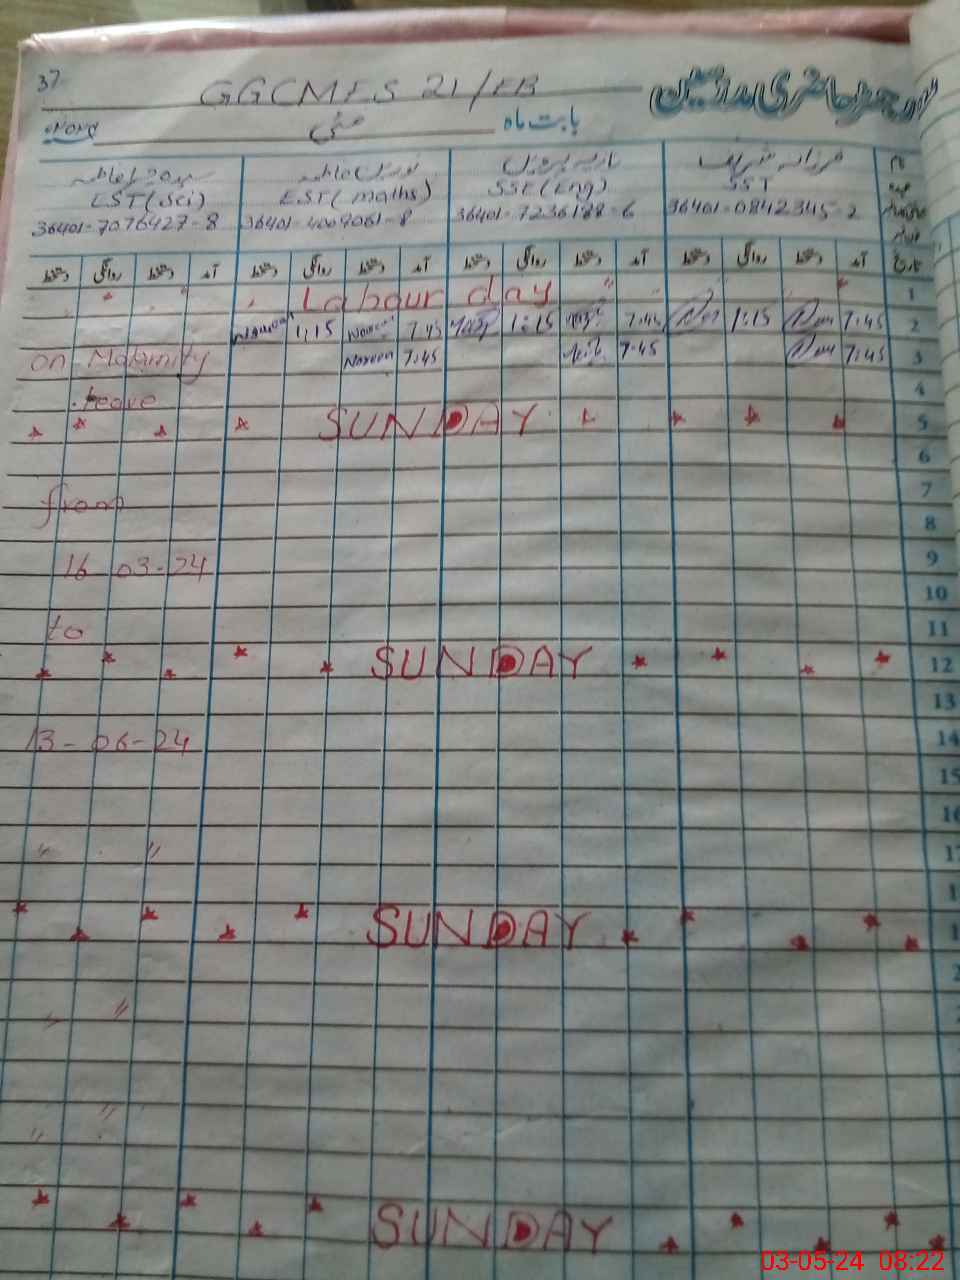 37
GGCMES 21/EB
رجسٹر حاضری مدرسین
بابت ماہ مئی
فرزانہ شریف نازیہ پروین فاطمہ سیدہ فاطمہ
SST SSE(Eng) EST(maths) EST(Sci)
36401-0842345-2 36401-7236188-6 36401-4009061-8 36401-7076427-8
نام
عہدہ
تاریخ آمد دستخط روانگی دستخط آمد دستخط روانگی دستخط آمد دستخط روانگی دستخط آمد دستخط روانگی دستخط
Labour day 1
1:15 7.45 1:15 7.45 1:15 7:45 2
on Maternity Nareen 7.45 7.45 7:45 3
Leave 4
SUNDAY 5
6
from 7
8
16-03-24 9
10
to 11
SUNDAY 12
13
13-06-24 14
15
16
17
SUNDAY
SUNDAY
03-05-24 08:22